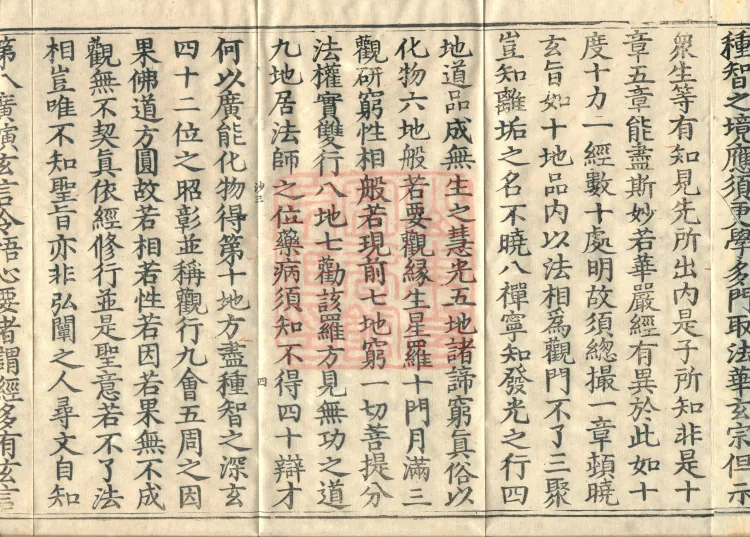 種智之境應須再學多門取法華玄宗但示
眾生等有知見先所出內是子所知非是十
章五章能盡斯妙若華嚴經有異於此如十
度十力一經數十處明故須總撮一章頓曉
玄旨如十地品內以法相為觀門不了三聚
豈知離垢之名不曉八禪寧知發光之行四
地道品成無生之慧光五地諸諦窮真俗以
化物六地般若要觀緣生星羅十門月滿三
觀研窮性相般若現前七地窮一切菩提分
法權實雙行八地七勸該羅方見無功之道
九地居法師之位藥病須知不得四十辯才
鈔三
四
何以廣能化物得第十地方盡種智之深玄
四十二位之昭彰並稱觀行九會五周之因
果佛道方圓故若相若性若因若果無不成
觀無不契真依經修行並是聖意若不了法
相豈唯不知聖旨亦非弘闡之人尋文自知
第八廣演玄言令悟心要者謂經多有玄言